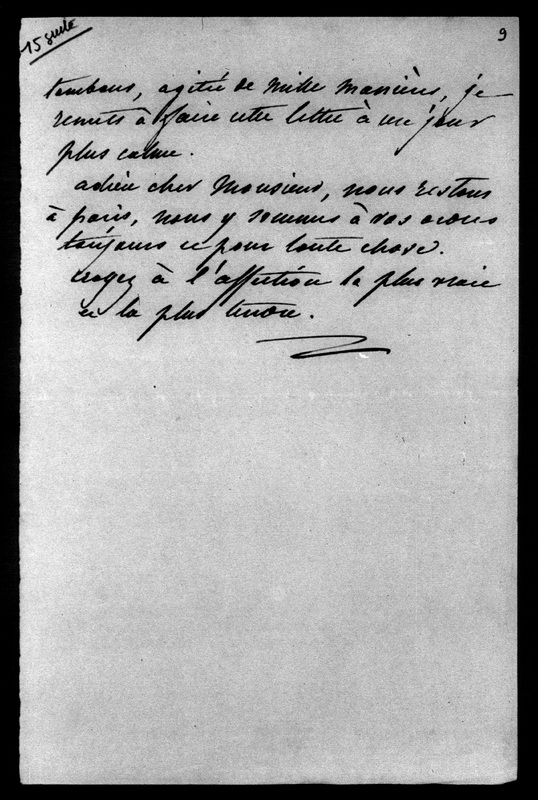 15 suite
9
tombons, agitée de mille manières, je
remets à faire cette lettre à un jour
plus calme.
adieu cher Monsieur, nous restons
à paris, nous y sommes à vos ordres
toujours et pour toute chose.
croyez à l'affection la plus vraie
et la plus tendre.